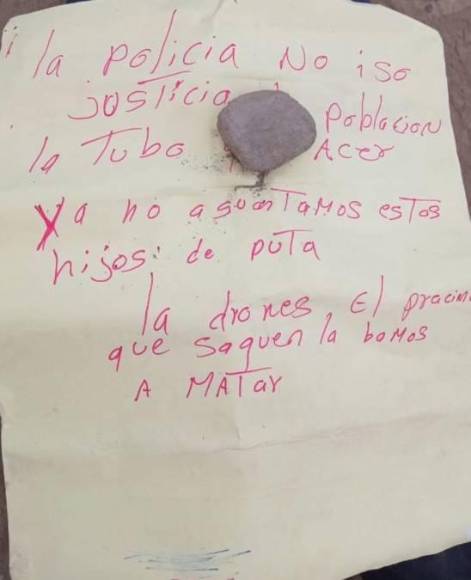 la policia No iso
justicia población
la Tubo Acer
Ya no aguanTaMos esTos
hijos: de puTa
la drones, El pracim
que saquen la baMos
A MATar